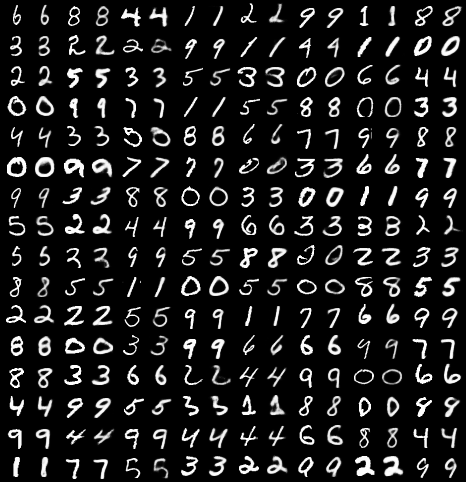 6 6 8 8 4 4 1 1 2 2 9 9 1 1 8 8
3 3 2 2 2 2 9 9 1 1 4 4 1 1 0 0
2 2 5 5 3 3 5 5 3 3 0 0 6 6 4 4
0 0 9 9 7 7 1 1 5 5 8 8 0 0 3 3
4 4 3 3 5 0 8 8 6 6 7 7 9 9 8 8
0 0 9 9 7 7 7 7 0 0 3 3 6 6 7 7
9 9 3 3 8 8 0 0 3 3 0 0 1 1 9 9
5 5 2 2 4 4 9 9 6 6 3 3 3 8 2 2
5 5 2 2 9 9 5 5 8 8 0 0 2 2 3 3
8 8 5 5 1 1 0 0 5 5 0 0 8 8 5 5
2 2 2 2 5 5 9 9 1 1 7 7 6 6 9 9
8 8 0 0 3 3 9 9 6 6 6 6 9 9 7 7
8 8 3 3 6 6 2 2 4 4 9 9 0 0 6 6
4 4 9 9 5 5 3 3 1 1 8 8 0 0 9 9
9 9 4 4 9 9 4 4 4 4 6 6 8 8 4 4
1 1 7 7 5 5 3 3 2 2 9 9 2 2 9 9